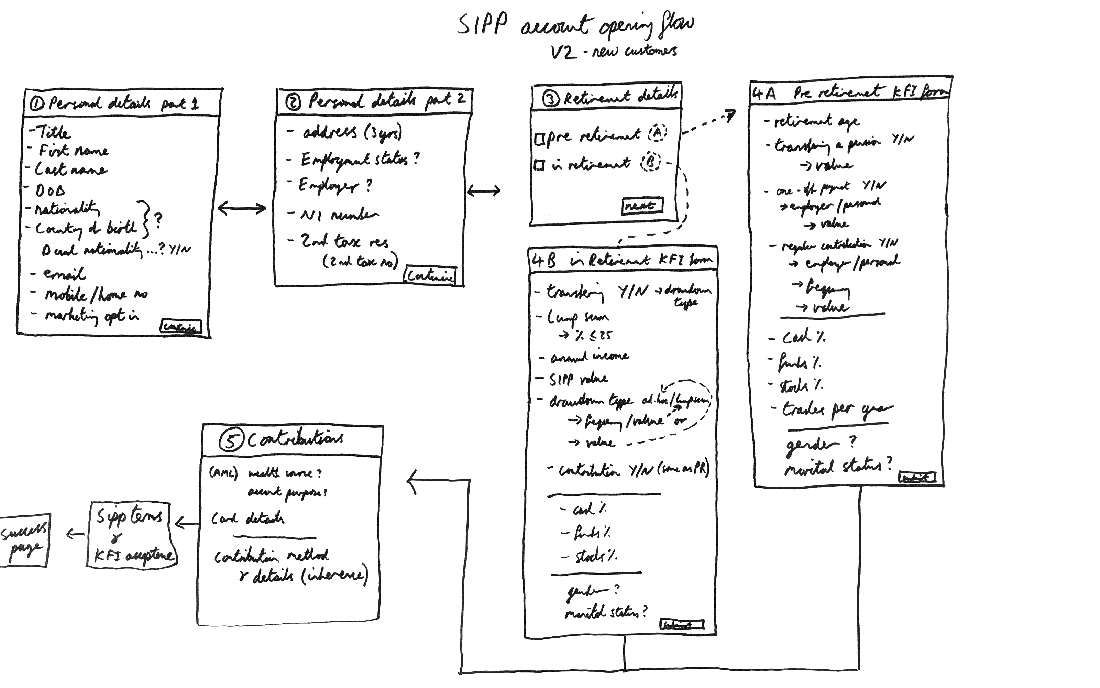 SIPP account opening flow
V2 - new customers
① Personal details part 1
- Title
- First name
- Last name
- DOB
- nationality
- Country of birth } ?
Dual nationality...? Y/N
- email
- mobile/home no
- marketing opt in
continue
② Personal details part 2
- address (3yrs)
- Employment status?
- Employer?
- NI number
- 2nd tax res
(2nd tax no)
Continue
③ Retirement details
pre retirement (A)
in retirement (B)
next
4A Pre retirement KFI form
- retirement age
- transfering a pension Y/N
→ value
- one-off payment Y/N
→ employer/personal
→ value
- regular contribution Y/N
→ employer/personal
→ frequency
→ value
- cash %
- funds %
- stocks %
- trades per year
gender?
marital status?
submit
4B in Retirement KFI form
- transfering Y/N → drawdown
type
- Lump sum
→ % ≤ 25
- annual income
- SIPP value
- drawdown type ad.hoc/lumpsum
→ frequency/value or
→ value
- contribution Y/N (same as PR)
- cash %
- funds %
- stocks %
gender?
marital status?
submit
⑤ Contributions
(AML) wealth source?
account purpose?
Card details
Contribution method
& details (inherence)
Sipp terms
&
KFI acceptence
success
page